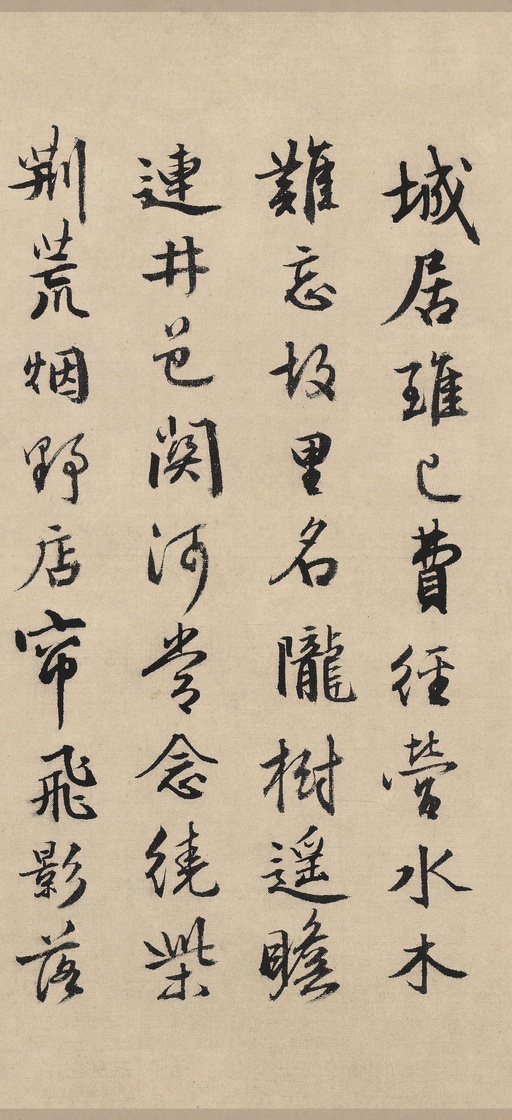 城居雖已費經營水木
難忘故里名隴樹遥瞻
連井邑關河常念繞柴
荆荒烟野店帘飛影落